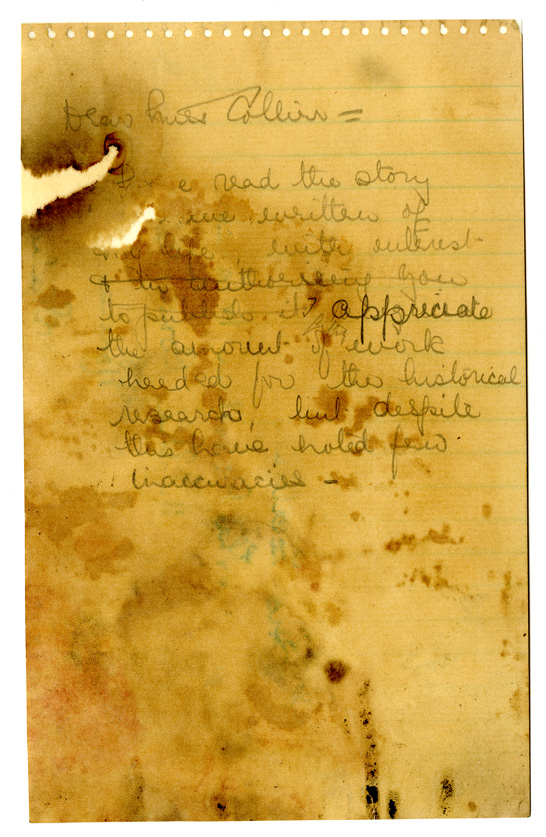 Dear Miss Collier =
read the story
written of
my life, with interest
& authorising you
to it. I appreciate
the amount of work
needed for the historical
research, but despite
this have noted few
inaccuracies -